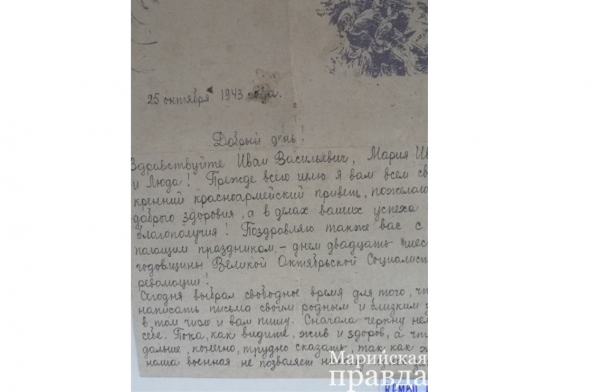 25 октября 1943 года.
Добрый день!
Здравствуйте Иван Васильевич, Мария
и Люда! Прежде всего шлю я вам всем
кренний красноармейский привет,
доброго здоровия, а в делах ваших успеха
благополучия! Поздравляю также вас с
пающим праздником – днем двадцать
годовщины Великой Октябрьской Социалист
революции!
Сегодня выбрал свободное время для того,
написать письма своим родным и близким
в том числе и вам пишу. Сначала черкну
себе. Пока, как видите, жив и здоров, а
дальше, конечно, трудно сказать, так как
наша военная не позволяет
Марийская
правда